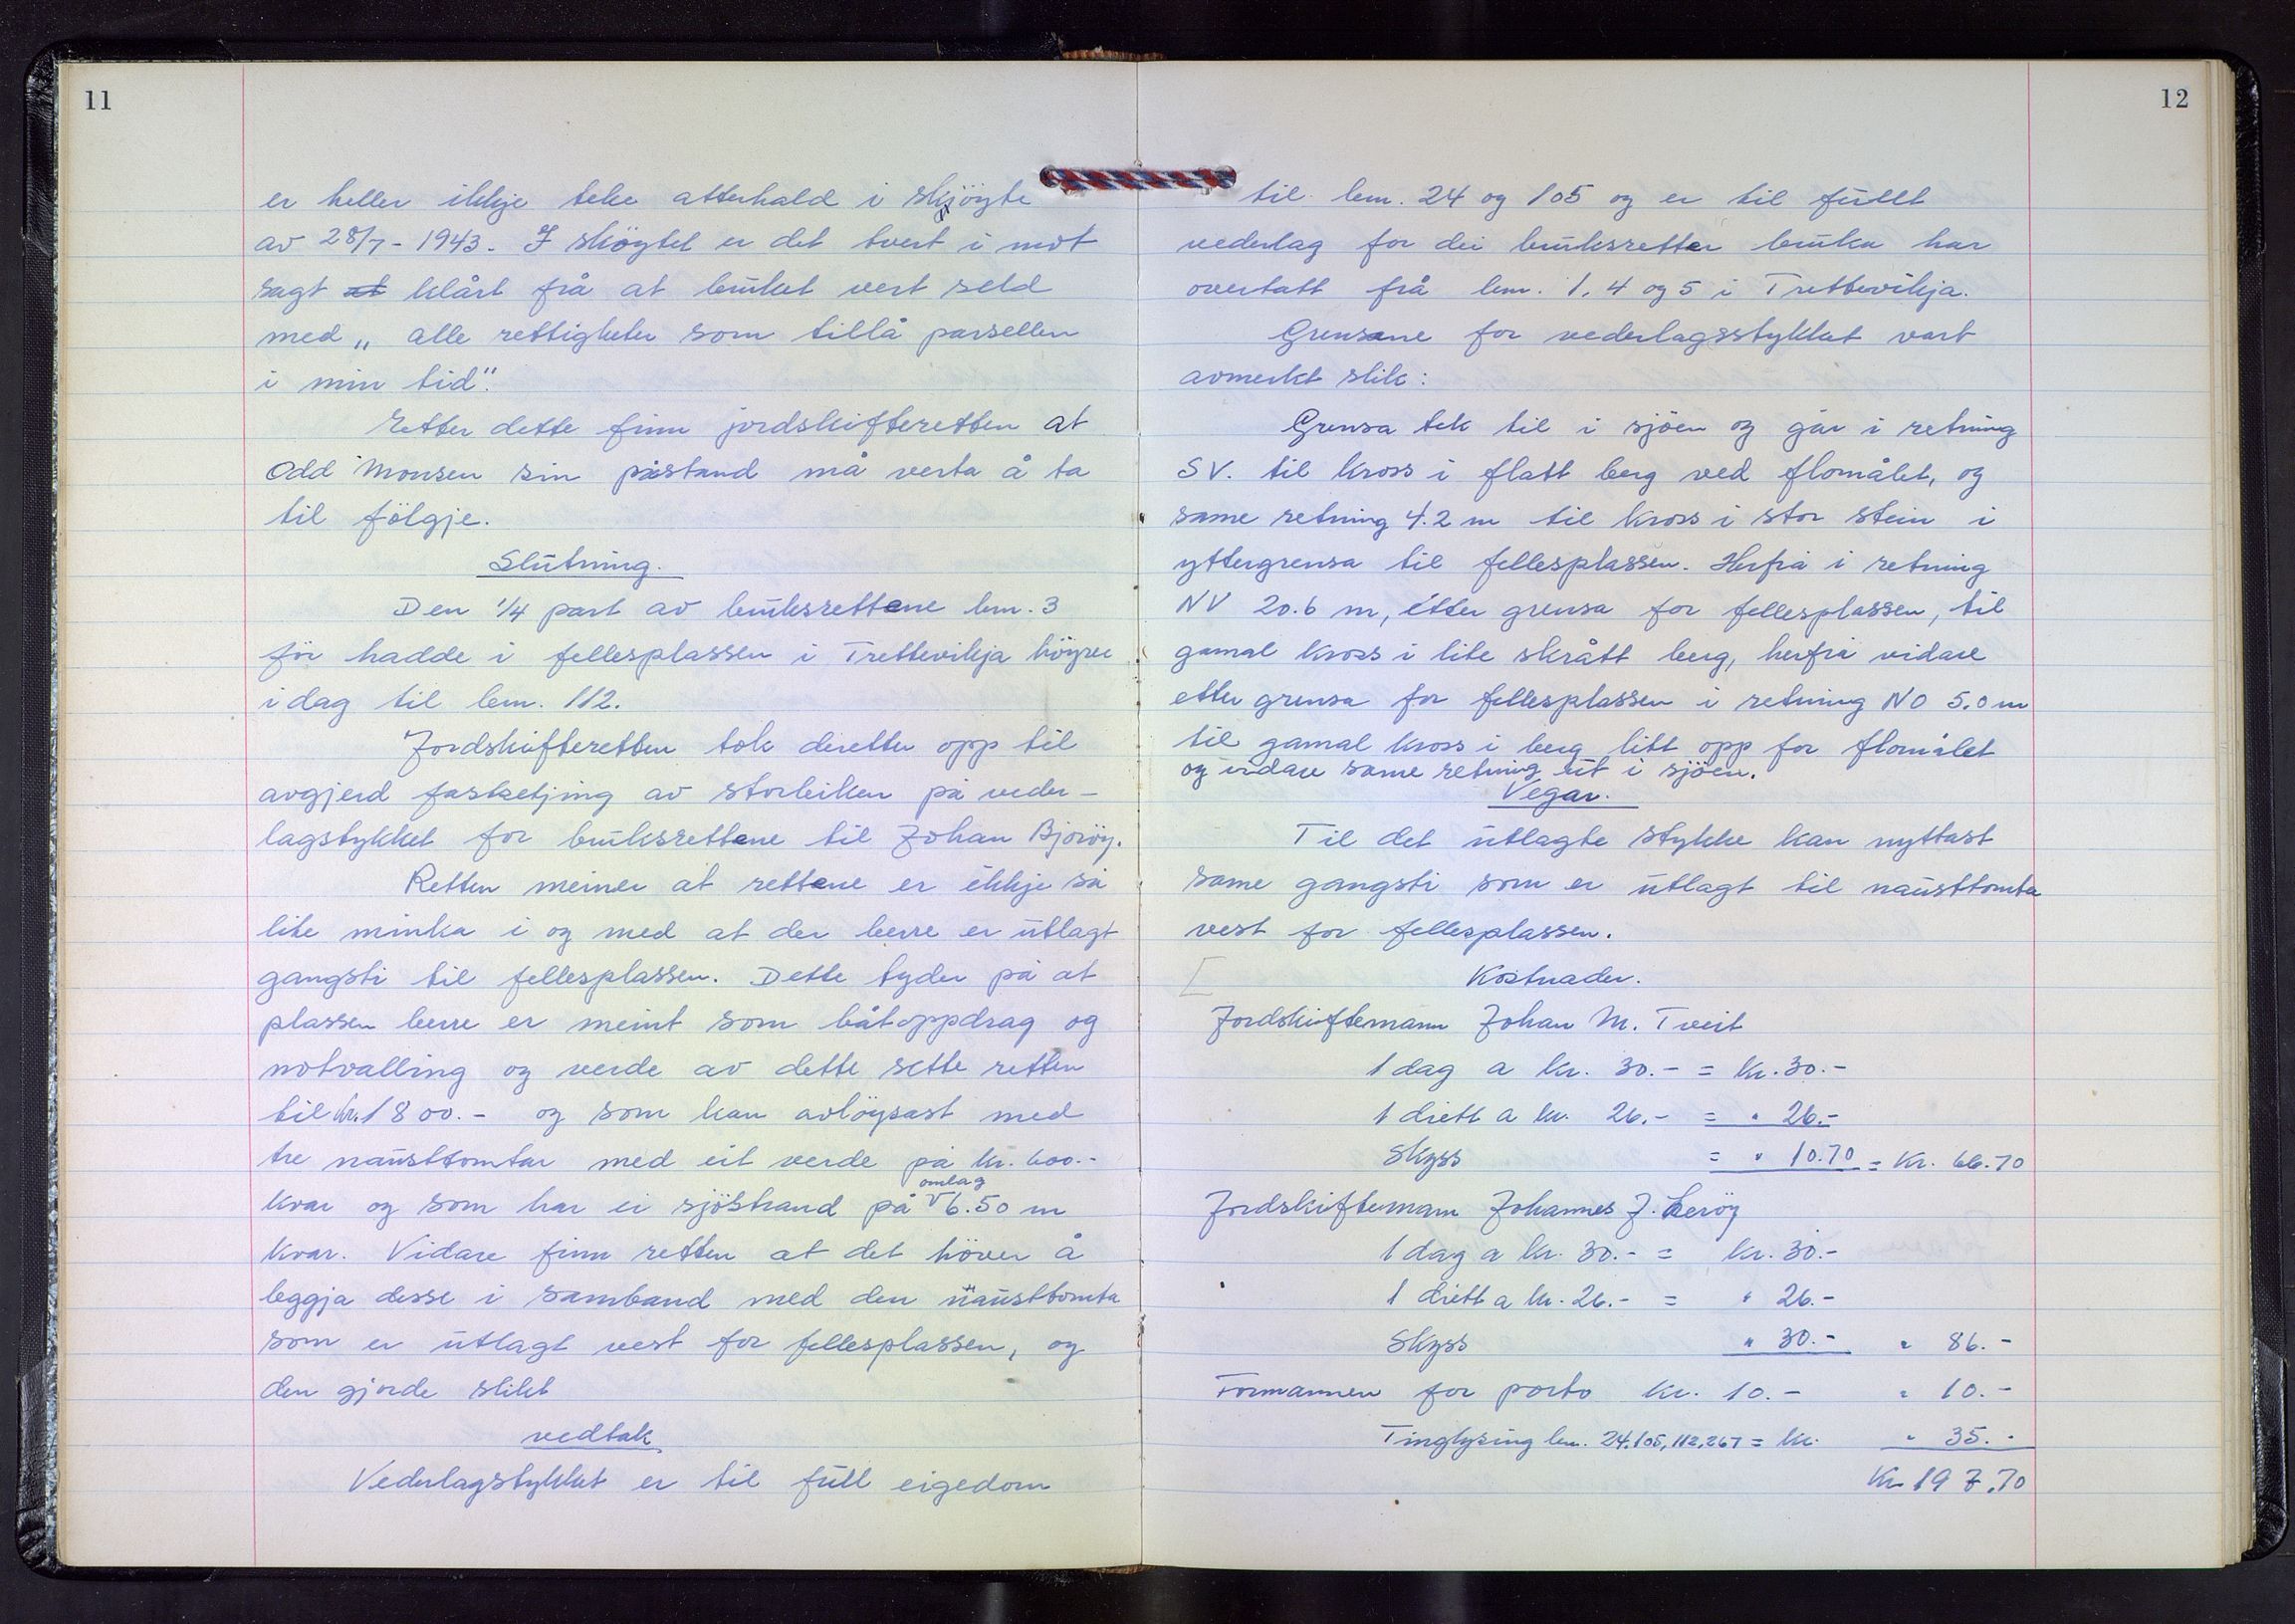 11
er heller ikkje teke atterhald i skjöyte
av 28/7 - 1943. I sköytet er det tvert i mot
sagt at klårt frå at bruket vert seld
med „ alle rettigheter som tillå parsellen
i min tid".
Etter dette finn jordskifteretten at
Odd Monsen sin påstand må verta å ta
til fölgje.
Slutning.
Den 1/4 part av bruksrettane bnr. 3
för hadde i fellesplassen i Trettevikja höyrer
i dag til bnr. 112.
Jordskifteretten tok deretter opp til
avgjerd fastsetjing av storleiken på veder-
lagstykket for bruksrettane til Johan Bjoröy.
Retten meiner at rettane er ikkje så
lite minka i og med at der berre er utlagt
gangsti til fellesplassen. Dette tyder på at
plassen berre er meint som båtoppdrag og
notvalling og verde av dette sette retten
til kr. 1800.- og som kan avlöysast med
tre nausttomtar med eit verde på kr. 600.-
kvar og som har ei sjöstrand på omlag 6.50 m
kvar. Vidare finn retten at det höver å
leggja desse i samband med den nausttomta
som er utlagt vest for fellesplassen, og
den gjorde slikt
vedtak
Vederlagstykket er til full eigedom
12
til bnr. 24 og 105 og er til fullt
vederlag for dei bruksretter bruka har
overtatt frå bnr. 1, 4 og 5 i Trettevikja.
Grensane for vederlagsstykket vart
avmerkt slik:
Grensa tek til i sjöen og går i retning
SV. til kross i flatt berg ved flomålet, og
same retning 4.2 m til kross i stor stein i
yttergrensa til fellesplassen. Herfrå i retning
NV 20.6 m, etter grensa for fellesplassen, til
gamal kross i lite skrått berg, herfrå vidare
etter grensa for fellesplassen i retning NO 5.0 m
til gamal kross i berg litt opp for flomålet
og vidare same retning ut i sjöen.
Vegar.
Til det utlagte stykke kan nyttast
same gangsti som er utlagt til nausttomta
vest for fellesplassen.
Kostnader.
Jordskiftemann Johan M. Tveit
1 dag a kr. 30.- = kr. 30.-
1 diett a kr. 26.- = " 26.-
Skyss = " 10.70 = Kr. 66.70
Jordskiftemann Johannes J. Leröy
1 dag a kr. 30.- = kr. 30.-
1 diett a kr. 26.- = " 26.-
Skyss " 30.- " 86.-
Formannen for porto kr. 10.- " 10.-
Tinglysing bnr. 24, 105, 112, 267 = kr. " 35.-
Kr. 197.70